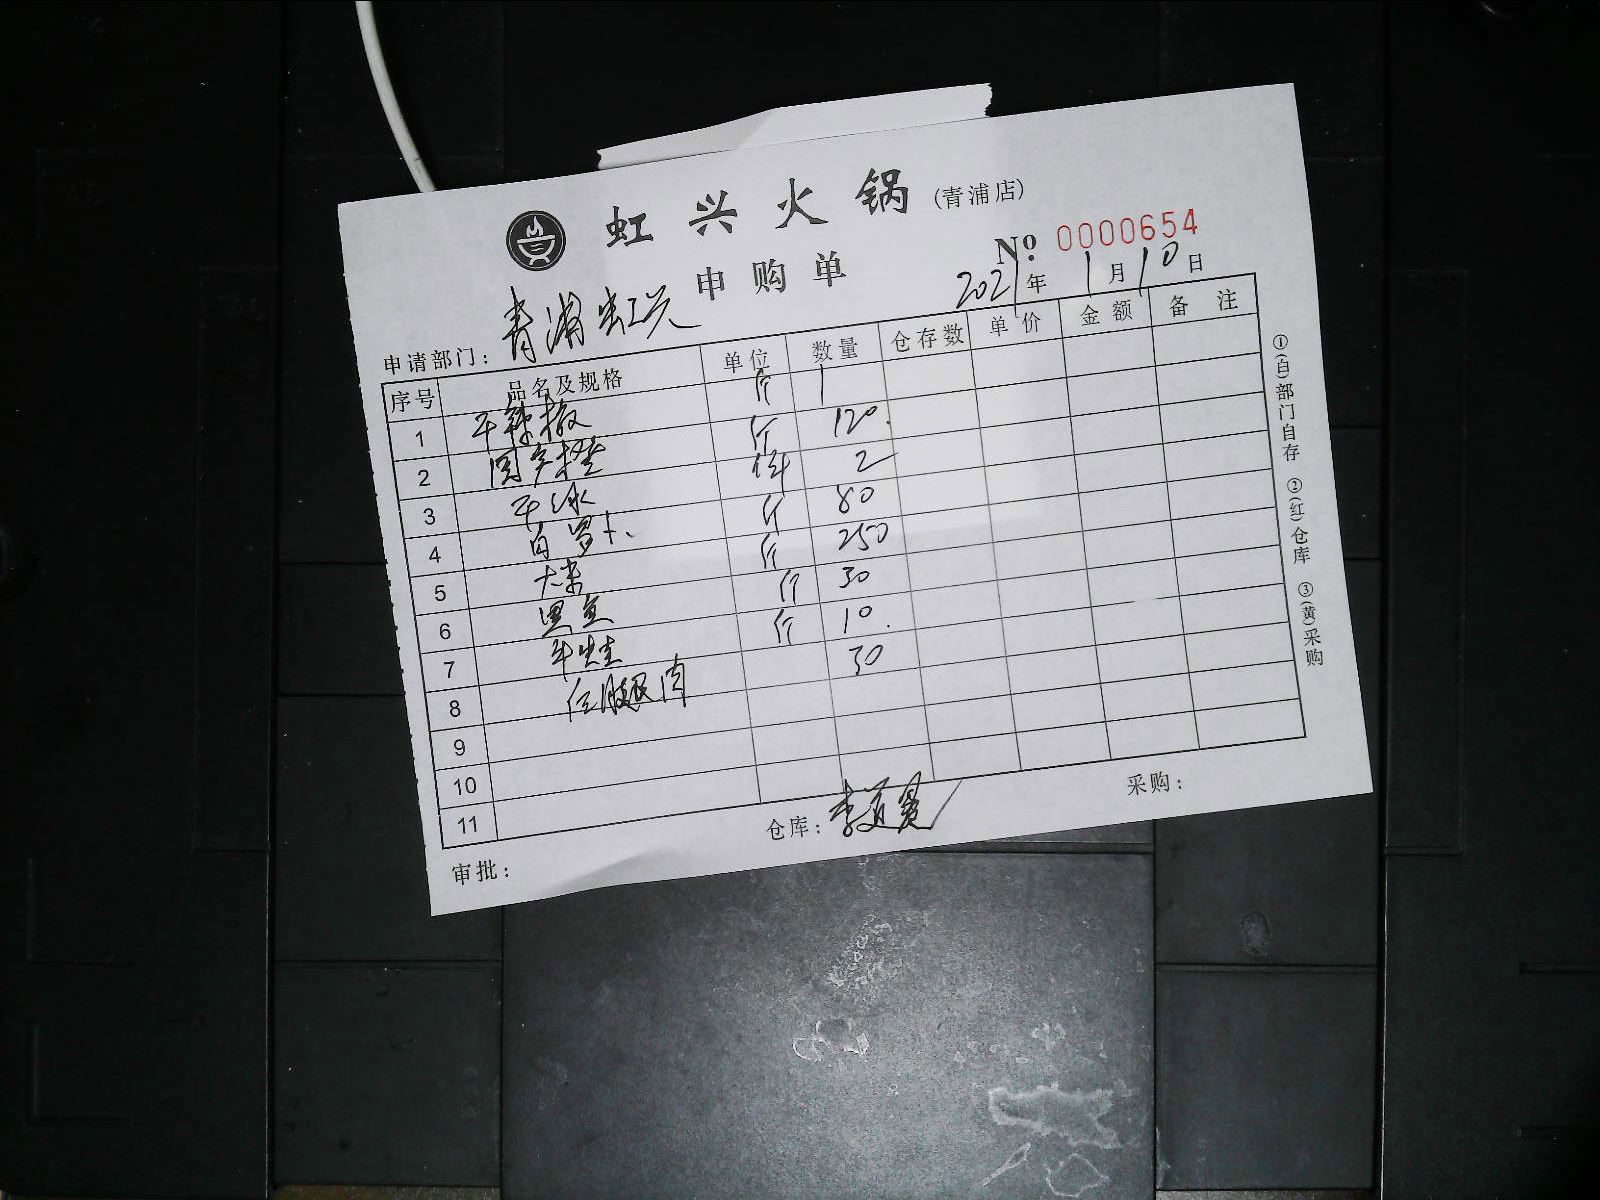 虹兴火锅(青浦店)
申购单
№ 0000654
2021年1月10日
申请部门：青浦虹兴
序号 品名及规格 单位 数量 仓存数 单价 金额 备注
1 干辣椒 斤 1
2 斤 120.
3 干冰 件 2
4 白罗卜 斤 80
5 大米 斤 250
6 黑鱼 斤 30
7 牛蛙 斤 10.
8 腿肉 30
9
10
11
审批：
仓库：
采购：
①(白)部门自存 ②(红)仓库 ③(黄)采购